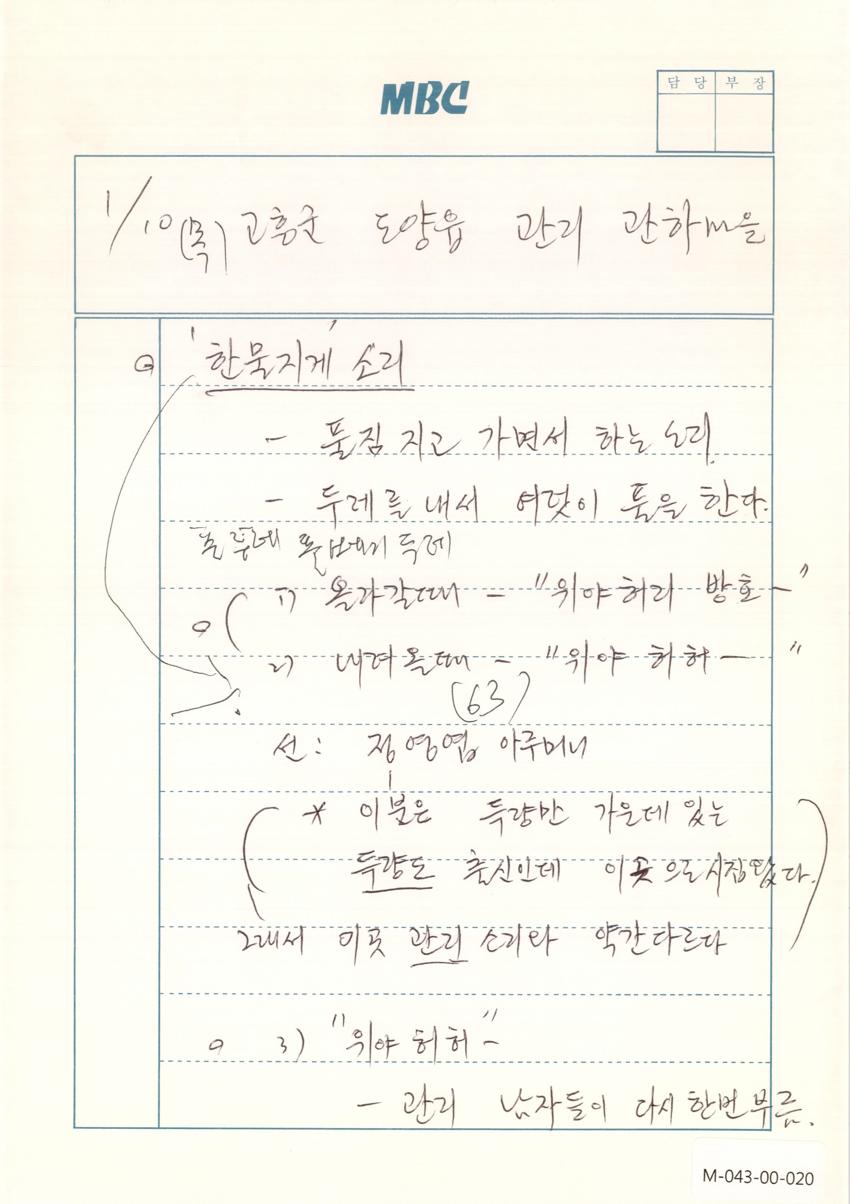 MBC
담 당 부 장
1/10(목) 고흥군 도양읍 관리 관하m을
'한물지게' 소리
- 풀짐 지고 가면서 하는 소리
- 두레를 내서 여덧이 풀을 한다.
풀두레 두레
1) 올라갈때 - "위야허리 방호-"
2) 내려올때 - "위야 허허- "
(63)
선: 정영엽 아주머니
* 이분은 득량만 가운데 있는
득량도 출신인데 이곳으로 시집왔다.
그래서 이곳 관리 소리와 약간 다르다
3) "위야 허허-"
- 관리 남자들이 다시 한번 부름.
M-043-00-020